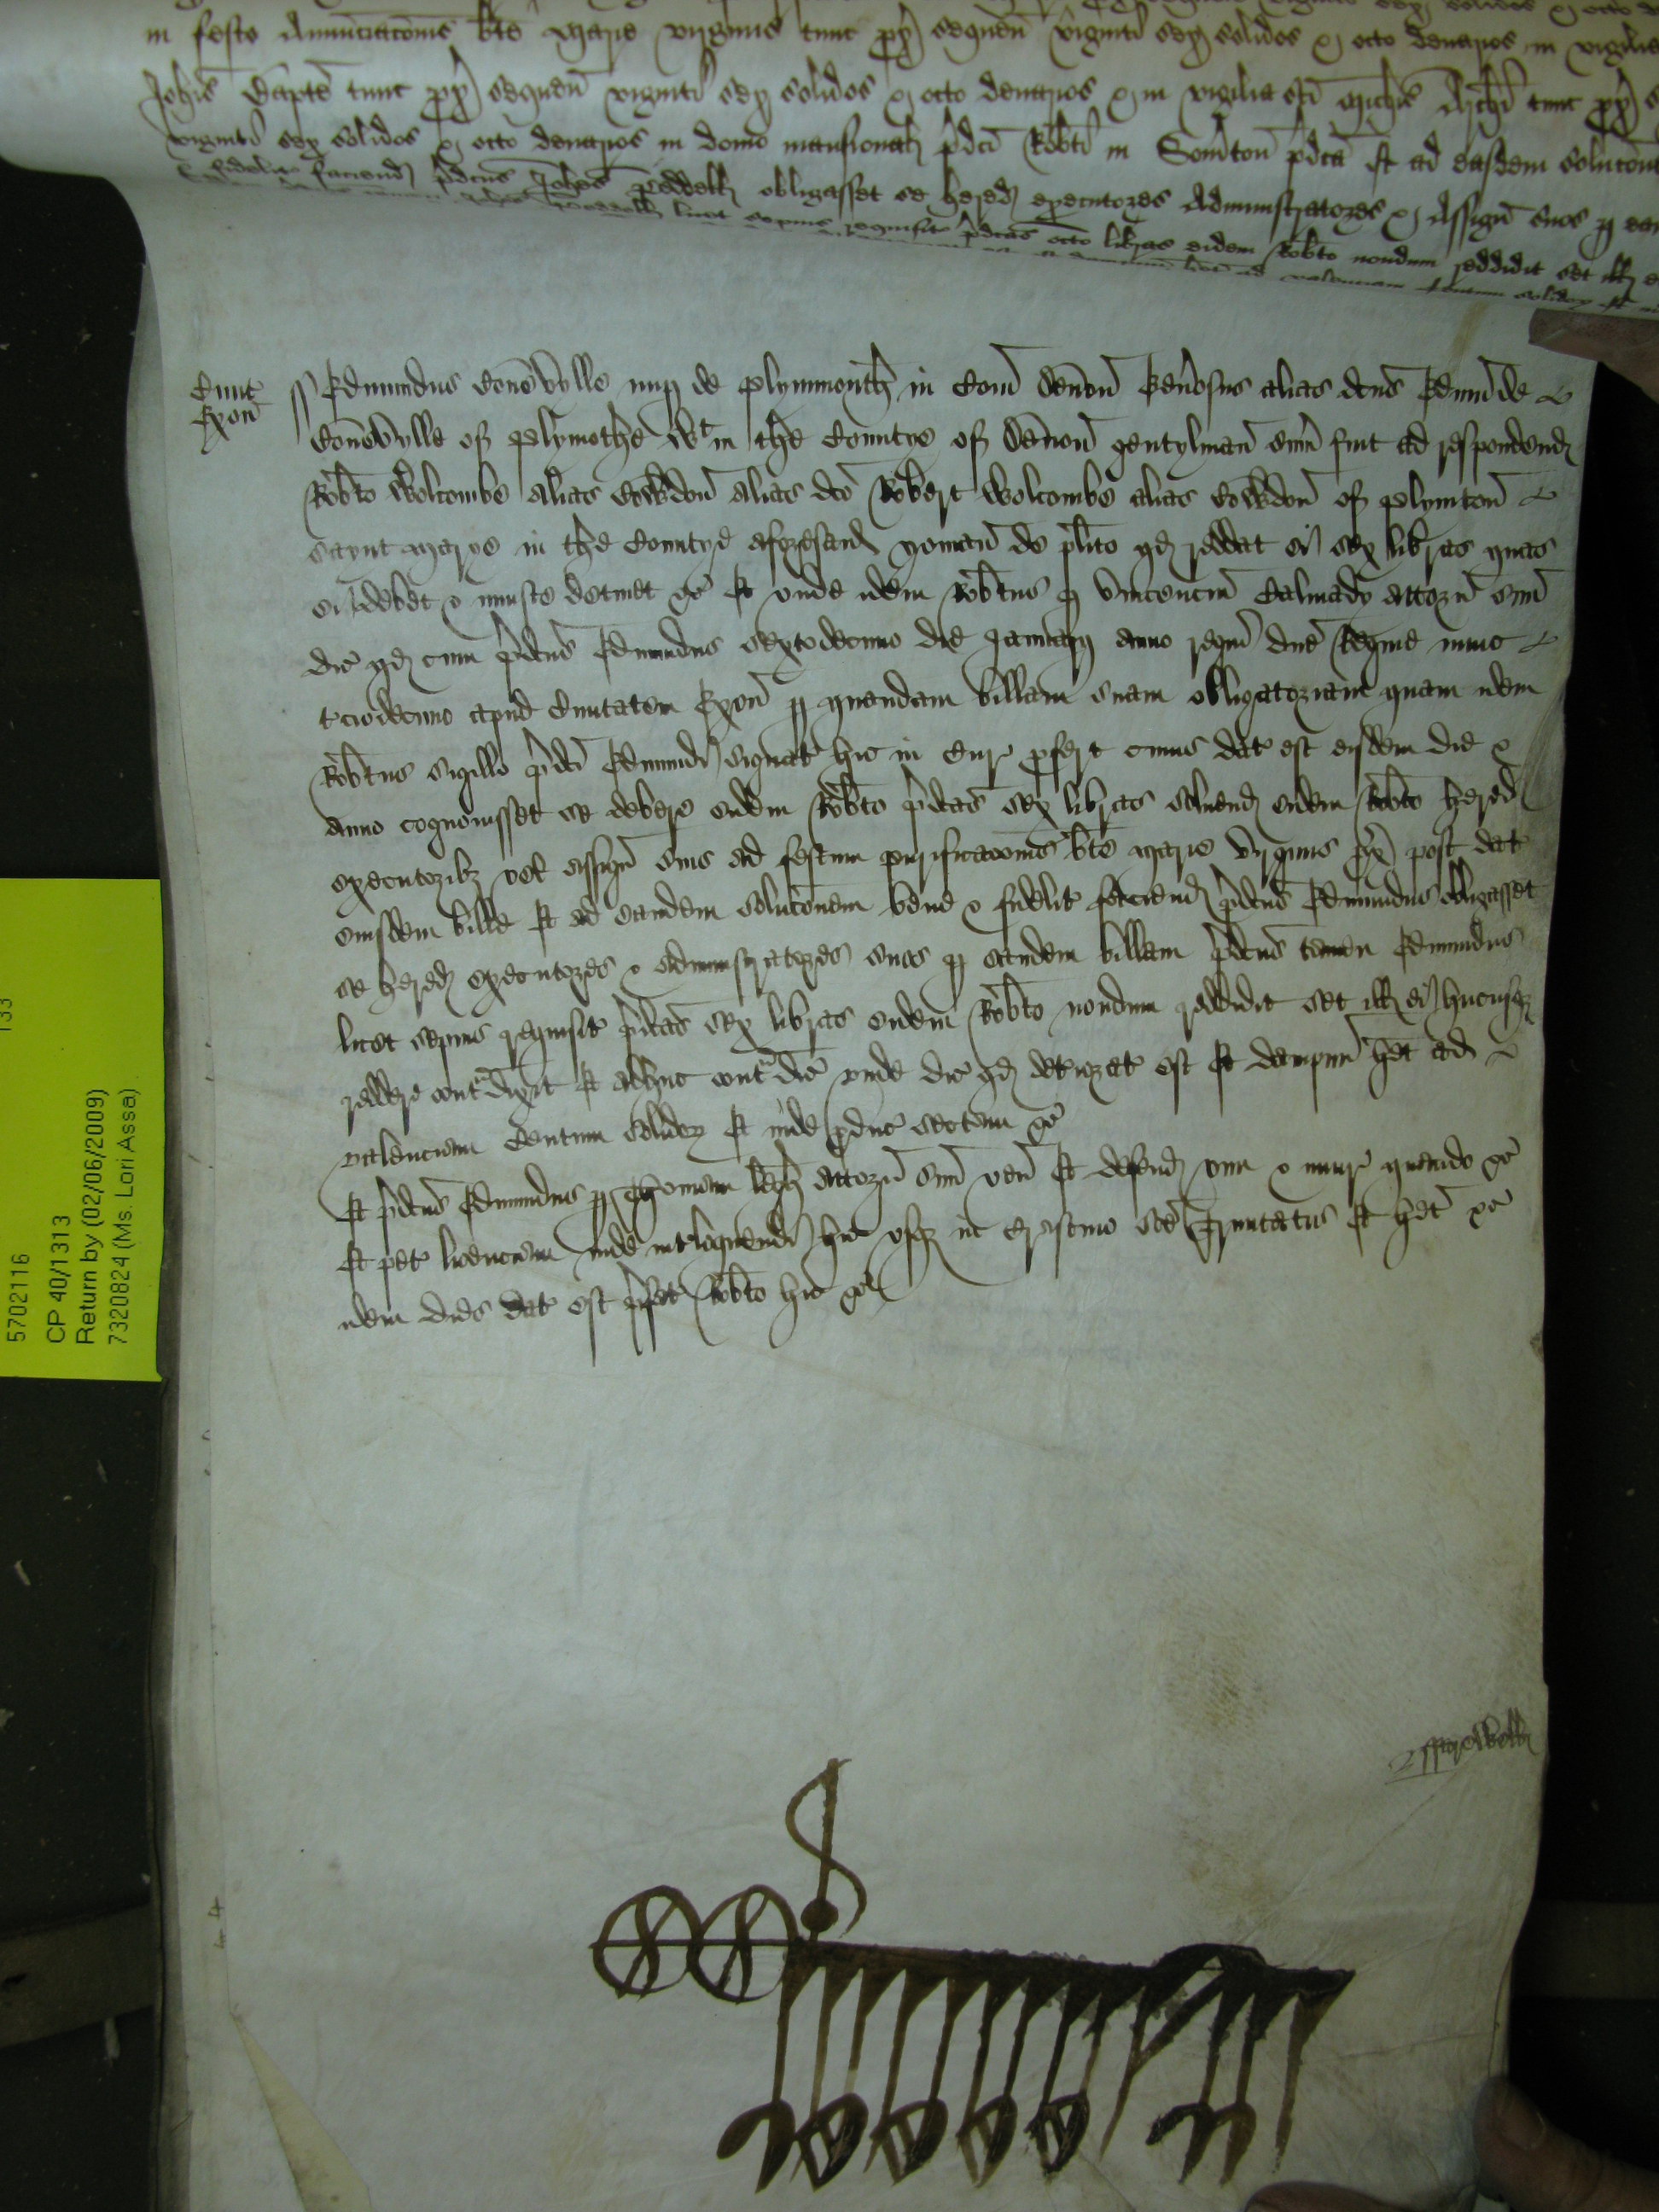 in festo Annunciacōnis bte Marie virginis tunc px̄ sequen viginti sex solidos & octo denarios in vigilia
Johis Bapte tunc px̄ sequen viginti sex solidos & octo denarios & in vigilia sci Michis Archi tunc px̄
viginti sex solidos & octo denarios in domo mansionali pdci Robti in Somton pdca Et ad easdem solucōn
& fidelit faciend pdcus Johes obligasset se hered executores Administratores & Assign suos p
licet sepius requisit pdcas octo libras eidem Robto nondum reddidit set ill
ad valenciam Centum solidoꝝ Et
Ciuit
Exon
ss Edmundus nup de plymmouth in Com Deuon Generosus alias dcus Edmunde
of plymothe wt in the Countye of Deuon gentylman sum fuit ad respondend
Robto Wolcombe alias Cowdon alias dco Robert Wolcombe alias Cowdon of plymton
Saynt Marye in the Countye aforesaid yoman de plito qd reddat ei sex libras quas
ei debet & iniuste detinet &c Et unde idem Robtus p Vincenciu Calmady Attorn suu
dic qd cum pdcus Edmundus sextodecimo die Januarij anno regni dne Regine nunc
tciodecimo apud Ciuitatem Exon p quandam billam suam obligatoriam quam idem
Robtus sigillo pdci Edmundi signat hic in Cur pfert cuius dat est eisdem die &
anno cognouisset se debere eidem Robto pdcas sex libras soluend eidem Robto hered
executoribꝫ vel assign suis ad festum purificacōnis bte Marie virginis px̄ post dat
eiusdem bille Et ad eandem solucōnem bene & fidelit faciend pdcus Edmundus obligasset
se hered executores & administratores suos p eandem billam pdcus tamen Edmundus
licet sepius requisit pdcas sex libras eidem Robto nondum reddidit set ill ei hucusqꝫ
reddere contᵃdixit Et adhuc contᵃdic unde dic qd deteriorat est Et dampnu het ad
valenciam Centum solidoꝝ Et inde pduc sectam &c
Et pdcus Edmundus p Thomam attorn suu ven Et defend vim & iniur quando &c
Et pet licenciam inde intloquendi hic usqꝫ in Crastino sce Trinitatis Et het &c
idem dies dat est pfat Robto hic &c
57021116
CP 40/1313
Return by (02/06/2009)
7320824 (Ms. Lori Assa)
133